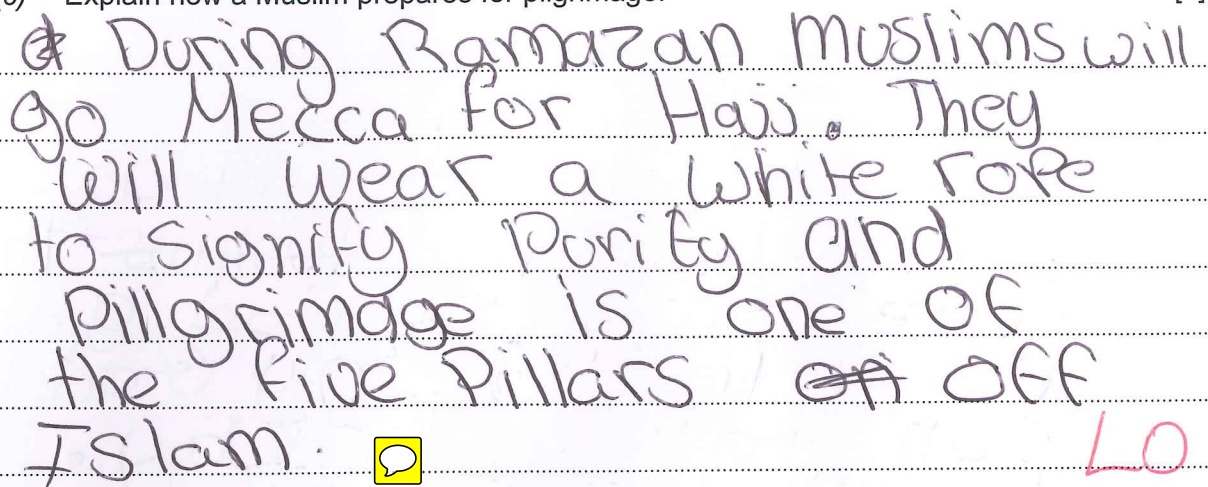 Explain how a Muslim prepares for pilgrimage.
During Ramazan muslims will
go Mecca for Hajj. They
will wear a white rope
to signify purity and
pillgrimage is one of
the five pillars off
Islam.
LO